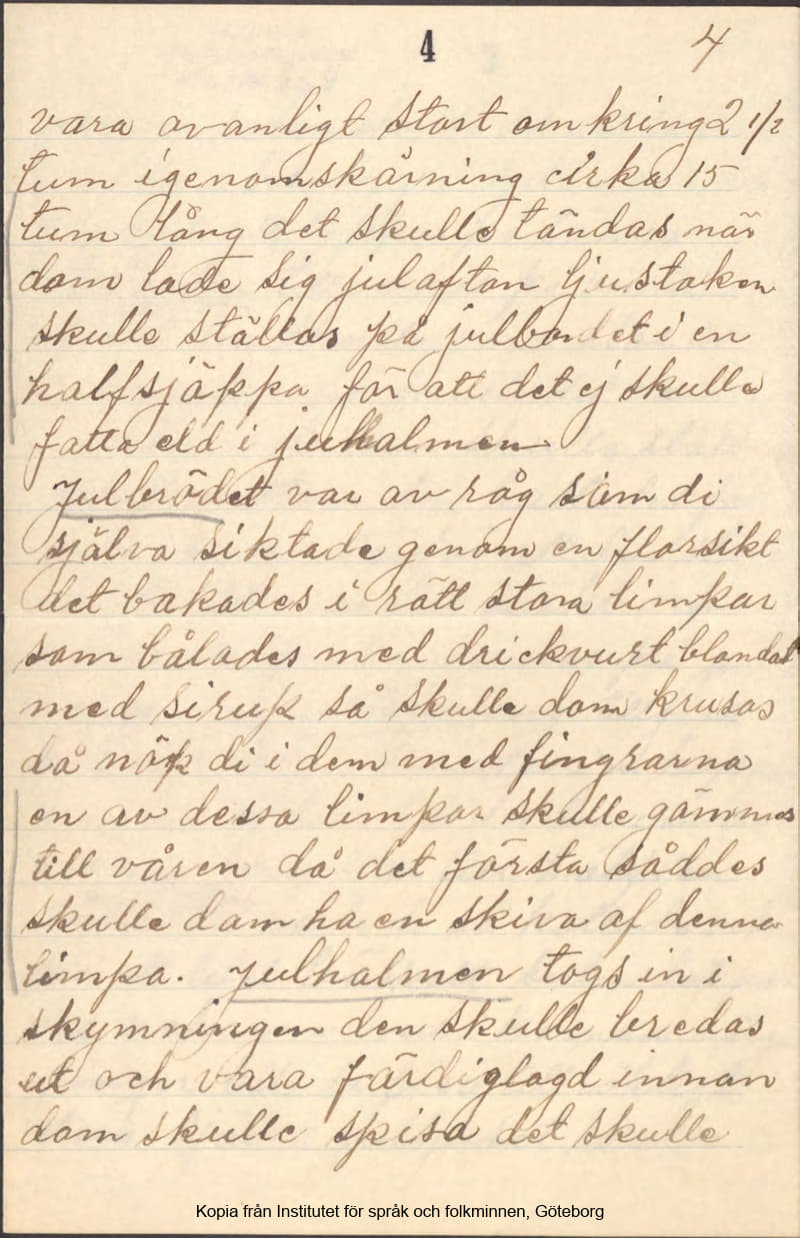 4 4
vara ovanligt stort omkring 2 1/2
tum igenomskärning cirka 15
tum lång det skulle tändas när
dom lade sig julafton ljustaken
skulle ställas på julbordet i en
halfsjäppa för att det ej skulle
fatta eld i julhalmen
Julbrödet var av råg som di
själva siktade genom en florsikt
det bakades i rätt stora limpar
som bålades med drickvurt blandat
med sirup så skulle dom krusas
då nöp di i dem med fingrarna
en av dessa limpar skulle gämmes
till våren då det första såddes
skulle dom ha en skiva af denna
limpa. Julhalmen togs in i
skymningen den skulle bredas
ut och vara färdiglagd innan
dom skulle spisa det skulle
Kopia från Institutet för språk och folkminnen, Göteborg